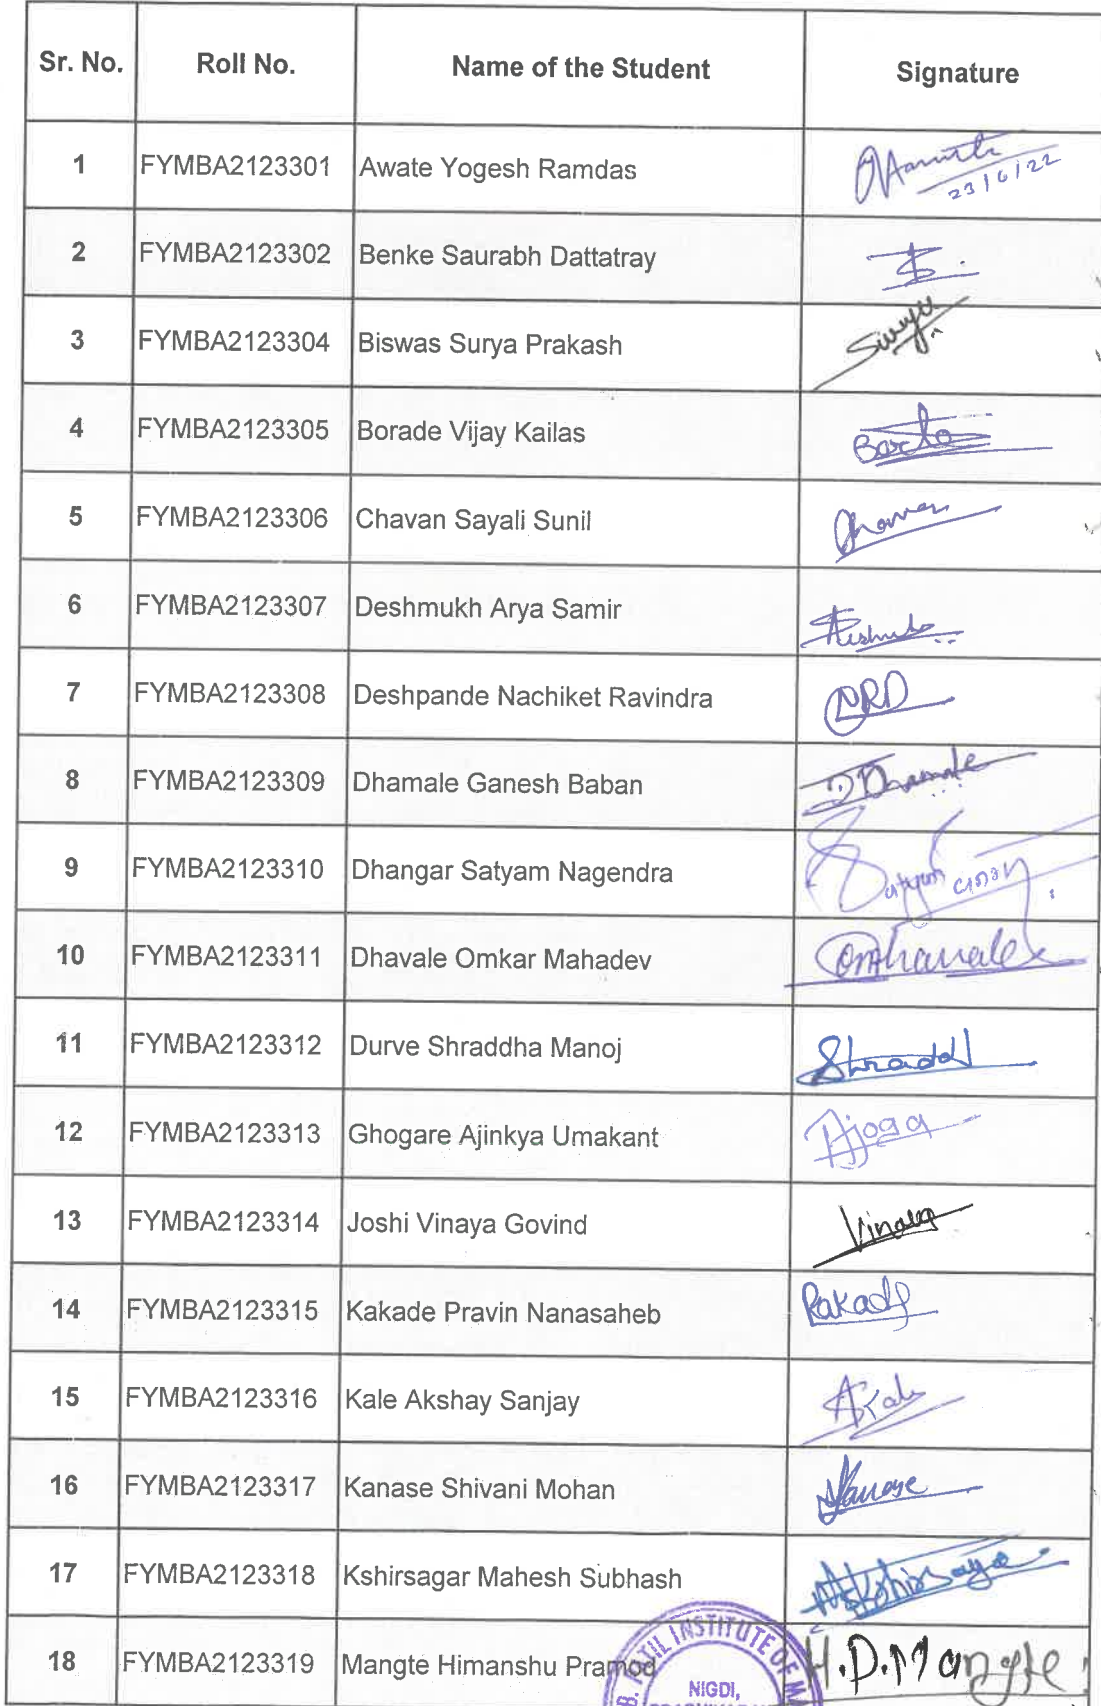 Sr. No. Roll No. Name of the Student Signature
1 FYMBA2123301 Awate Yogesh Ramdas
23/6/22
2 FYMBA2123302 Benke Saurabh Dattatray
3 FYMBA2123304 Biswas Surya Prakash Surya
4 FYMBA2123305 Borade Vijay Kailas
5 FYMBA2123306 Chavan Sayali Sunil
6 FYMBA2123307 Deshmukh Arya Samir
7 FYMBA2123308 Deshpande Nachiket Ravindra NRD
8 FYMBA2123309 Dhamale Ganesh Baban Dhamale
9 FYMBA2123310 Dhangar Satyam Nagendra Satyam
10 FYMBA2123311 Dhavale Omkar Mahadev
11 FYMBA2123312 Durve Shraddha Manoj
12 FYMBA2123313 Ghogare Ajinkya Umakant
13 FYMBA2123314 Joshi Vinaya Govind Vinaya
14 FYMBA2123315 Kakade Pravin Nanasaheb
15 FYMBA2123316 Kale Akshay Sanjay
16 FYMBA2123317 Kanase Shivani Mohan
17 FYMBA2123318 Kshirsagar Mahesh Subhash
18 FYMBA2123319 Mangte Himanshu Pramod H.D.Mangte
B. PATIL INSTITUTE OF
NIGDI,